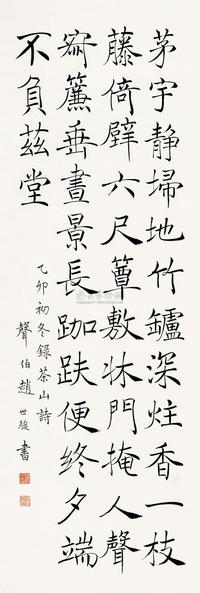 茅宇静掃地竹鑪深炷香一枝
藤倚壁六尺簟敷牀門掩人聲
寂簾垂晝景長跏趺便終夕端
不負茲堂
乙卯初冬錄茶山詩
聲伯趙世駿書